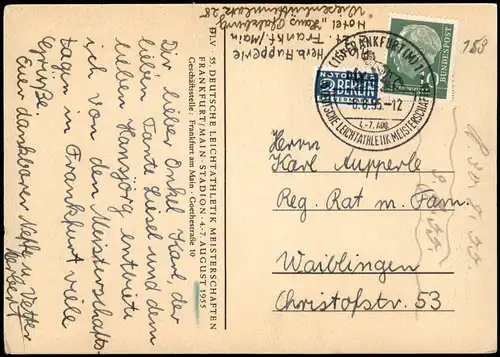 Herb. Aupperle
z. Zt. Frankf./Main
Hotel „Haus Pfalzburg"
Wiesenhüttenplatz 28
Dir lieber Onkel Karl, der
lieben Tante Liesel und dem
lieben Hansjörg entbiete
ich von den Meisterschafts-
tagen in Frankfurt viele
Grüße.
Euer dankbarer Neffe u. Vetter
Herbert
DLV · 55. DEUTSCHE LEICHTATHLETIK MEISTERSCHAFTEN
FRANKFURT/MAIN · STADION · 4.-7. AUGUST 1955
Geschäftsstelle: Frankfurt am Main · Goethestraße 10
(16) FRANKFURT (M)
6.8.55.-12
4.-7. AUG.
DEUTSCHE LEICHTATHLETIK MEISTERSCHAFTEN
NOTOPFER
2 BERLIN
STEUERMARKE
DEUTSCHE BUNDESPOST
10
183
Herrn
Karl Aupperle
Reg. Rat m. Fam.
Waiblingen
Christofstr. 53